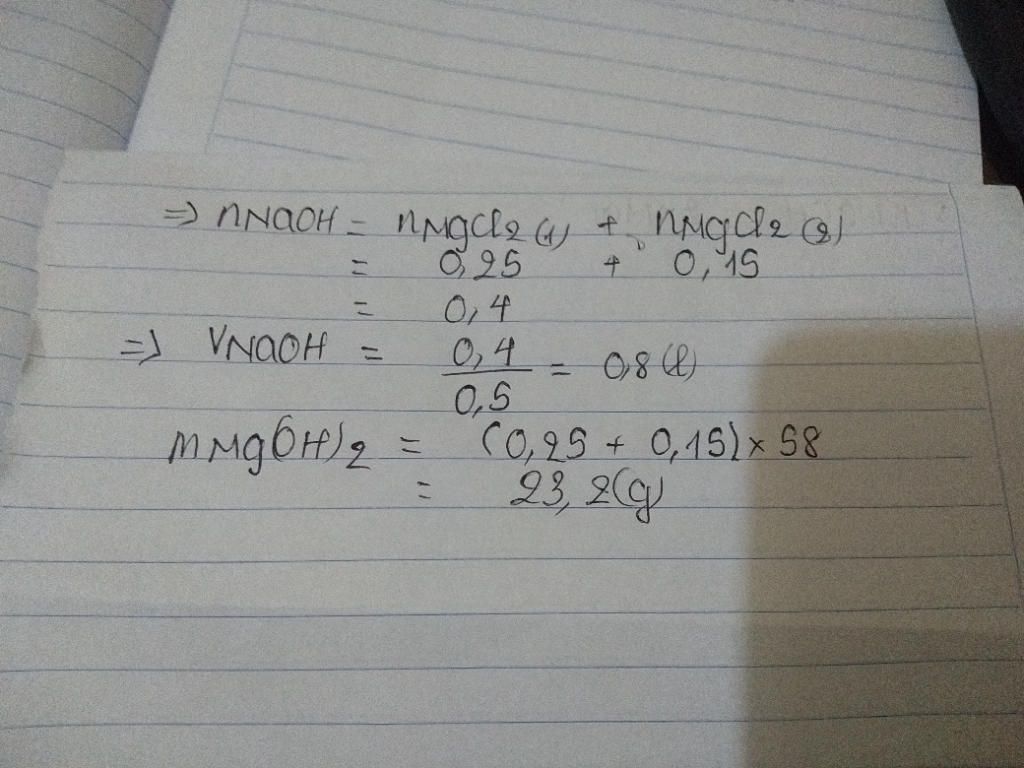 => nNaOH = nMgCl2 (1) + nMgCl2 (2)
= 0,25 + 0,15
= 0,4
=> VNaOH = 0,4 / 0,5 = 0,8 (l)
mMg(OH)2 = (0,25 + 0,15) x 58
= 23,2(g)